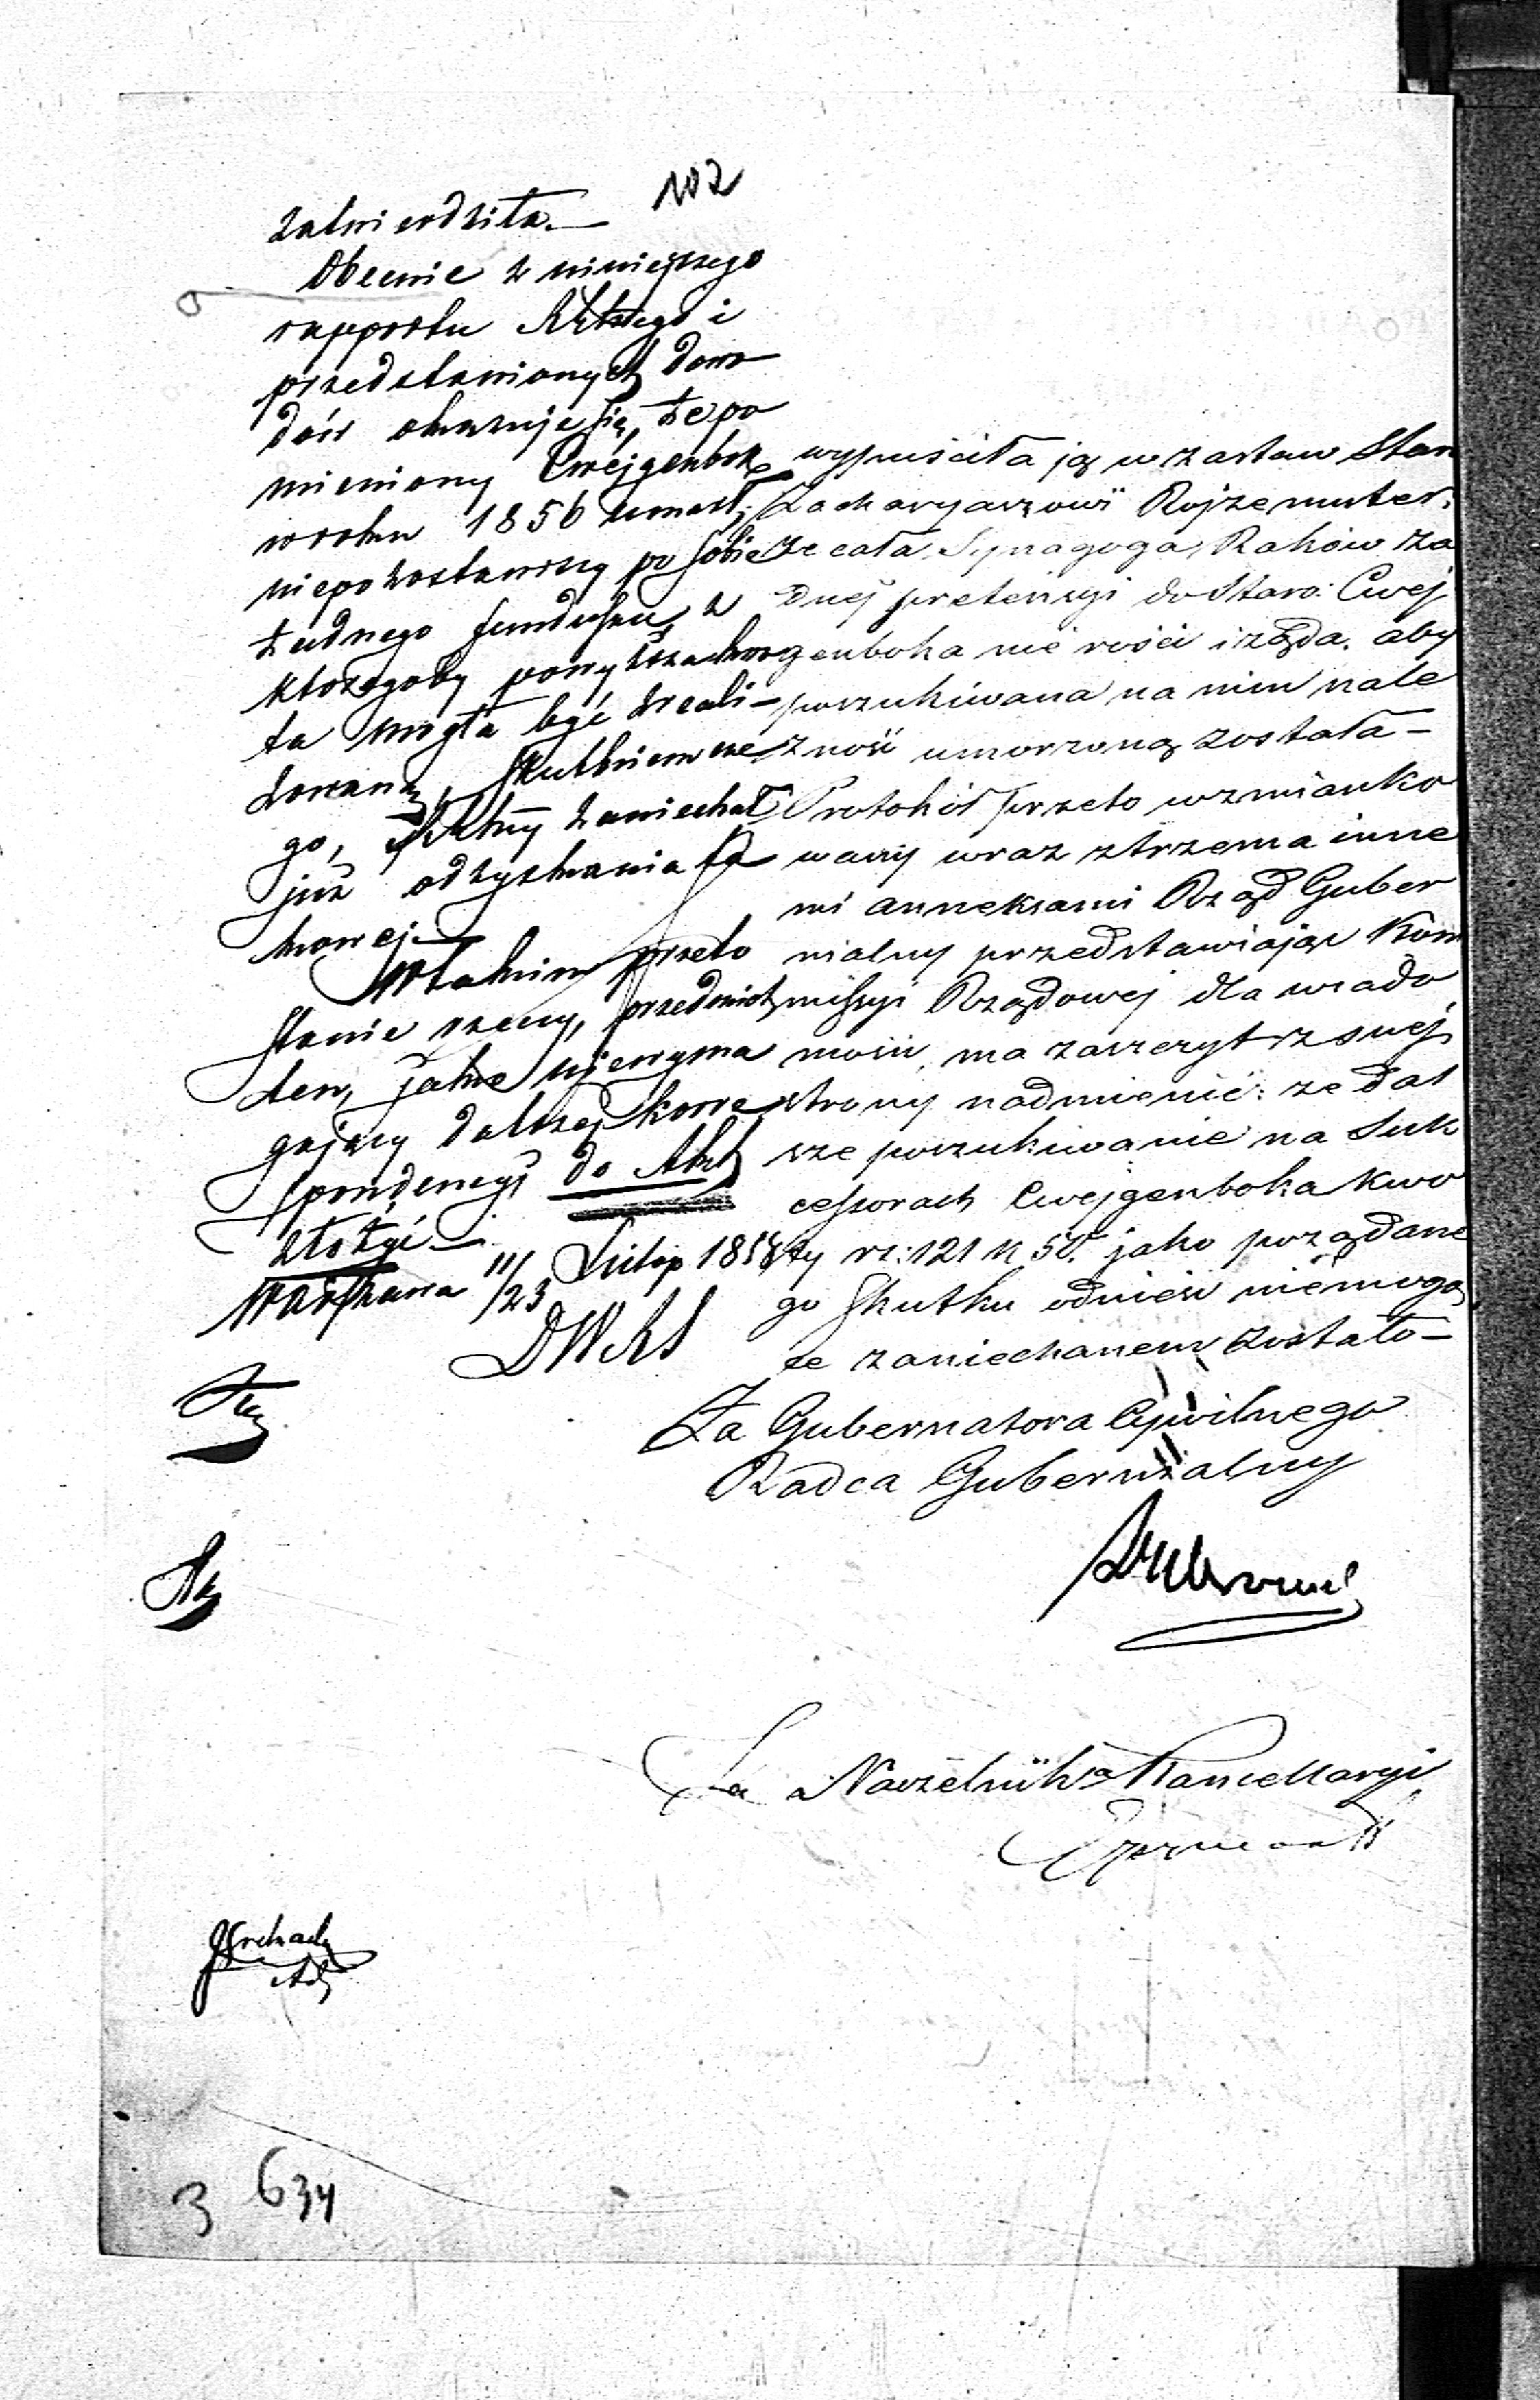 102
zatwierdziła.—
Obecnie z niniejszego
rapportu i
przedstawionych dowo
dów okazuje się, że po
mieniony Cwejgenbok
w roku 1856 umarł,
niepozostawiwszy po sobie
żadnego funduszu, z
któregoby powyższa kwo
ta mogła być zreali-
zowaną, skutkiem cze
go, zaniechał
już odzyskania ta
kowej.—
W takim przeto
stanie rzeczy, przedmiot
ten, jako niewyma
gający dalszej korre
spondencyi do Akt
złożyć—
Warszawa 11/23 Listop 1858
wypuściła ją w zastaw Staro
Zacharyaszowi Rojzemuter:
że cała Synagoga Raków ża
dnej pretensyi do Staro: Cwej
genboka nie rości i żąda, aby
poszukiwana na nim nale
żność umorzoną została—
Protokół przeto wzmianko
wany wraz z trzema inne
mi anneksami Rząd Guber
nialny przedstawiając Kom
missyi Rządowej dla wiado
mości, ma zaszczyt z swej
strony nadmienić: że dal
sze poszukiwanie na Suk
cessorach Cwejgenboka kwo
ty rs: 121 k 50. jako pożądane
go skutku odnieść niemogą
ce zaniechanem zostało—
Za Gubernatora Cywilnego
Radca Gubernialny
Za Naczelnika Kancellaryi
3 634